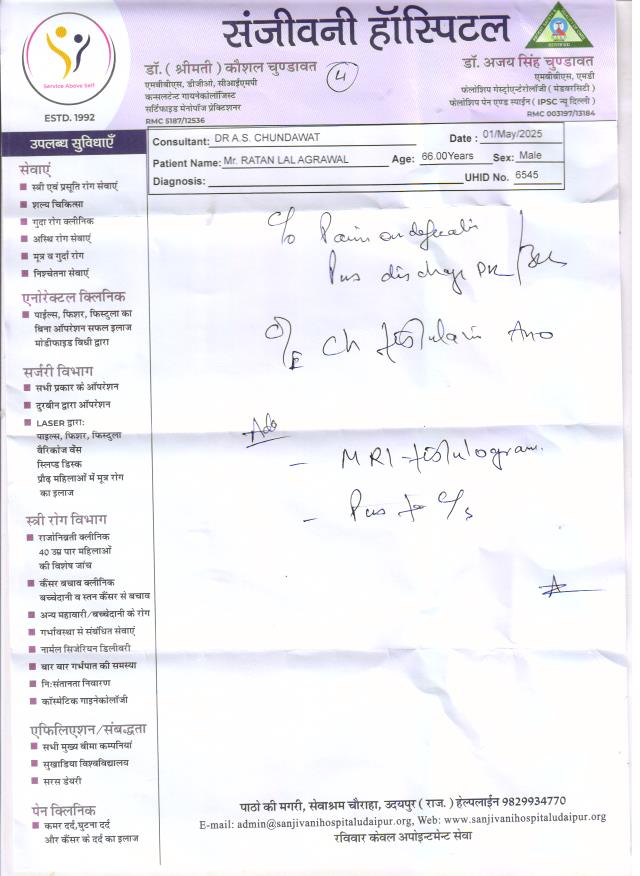 संजीवनी हॉस्पिटल
Service Above Self
ESTD. 1992
डॉ. ( श्रीमती ) कौशल चुण्डावत
एमबीबीएस, डीजीओ, सीआईएमपी
कन्सलटेन्ट गायनेकोलॉजिस्ट
सर्टिफाइड मेनोपॉज प्रेक्टिशनर
RMC 5187/12536
4
डॉ. अजय सिंह चुण्डावत
एमबीबीएस, एमडी
फेलोशिप गेस्ट्रोएन्टरोलॉजी ( मेडवरसिटी )
फेलोशिप पेन एण्ड स्पाईन ( IPSC न्यू दिल्ली )
RMC 003197/13184
Consultant: DR A.S. CHUNDAWAT Date : 01/May/2025
Patient Name: Mr. RATAN LAL AGRAWAL Age: 66.00Years Sex: Male
Diagnosis: UHID No. 6545
उपलब्ध सुविधाएँ
सेवाएं
स्त्री एवं प्रसूति रोग सेवाएं
शल्य चिकित्सा
गुदा रोग क्लीनिक
अस्थि रोग सेवाएं
मूत्र व गुर्दा रोग
निश्चेतना सेवाएं
एनोरेक्टल क्लिनिक
पाईल्स, फिशर, फिस्टुला का
बिना ऑपरेशन सफल इलाज
मोडीफाइड विधी द्वारा
सर्जरी विभाग
सभी प्रकार के ऑपरेशन
दुरबीन द्वारा ऑपरेशन
LASER द्वारा:
पाइल्स, फिशर, फिस्टुला
वैरिकोज वेंस
स्लिप्ड डिस्क
प्रौढ़ महिलाओं में मूत्र रोग
का इलाज
स्त्री रोग विभाग
राजोनिव्रती क्लीनिक
40 उम्र पार महिलाओं
की विशेष जांच
कैंसर बचाव क्लीनिक
बच्चेदानी व स्तन कैंसर से बचाव
अन्य महावारी/बच्चेदानी के रोग
गर्भावस्था से संबंधित सेवाएं
नार्मल सिजेरियन डिलीवरी
बार बार गर्भपात की समस्या
नि:संतानता निवारण
कॉस्मेटिक गाइनेकोलॉजी
एफिलिएशन/संबद्धता
सभी मुख्य बीमा कम्पनियां
सुखाडिया विश्वविद्यालय
सरस डेयरी
पेन क्लिनिक
कमर दर्द,घुटना दर्द
और कैंसर के दर्द का इलाज
C/o Pain on defecatin
Pus discharge PR
O/E Ch fistula in Ano
Adv
- MRI - fistulogram.
- Pus for C/s
पाठो की मगरी, सेवाश्रम चौराहा, उदयपुर ( राज. ) हेल्पलाईन 9829934770
E-mail: admin@sanjivanihospitaludaipur.org, Web: www.sanjivanihospitaludaipur.org
रविवार केवल अपोइन्टमेन्ट सेवा